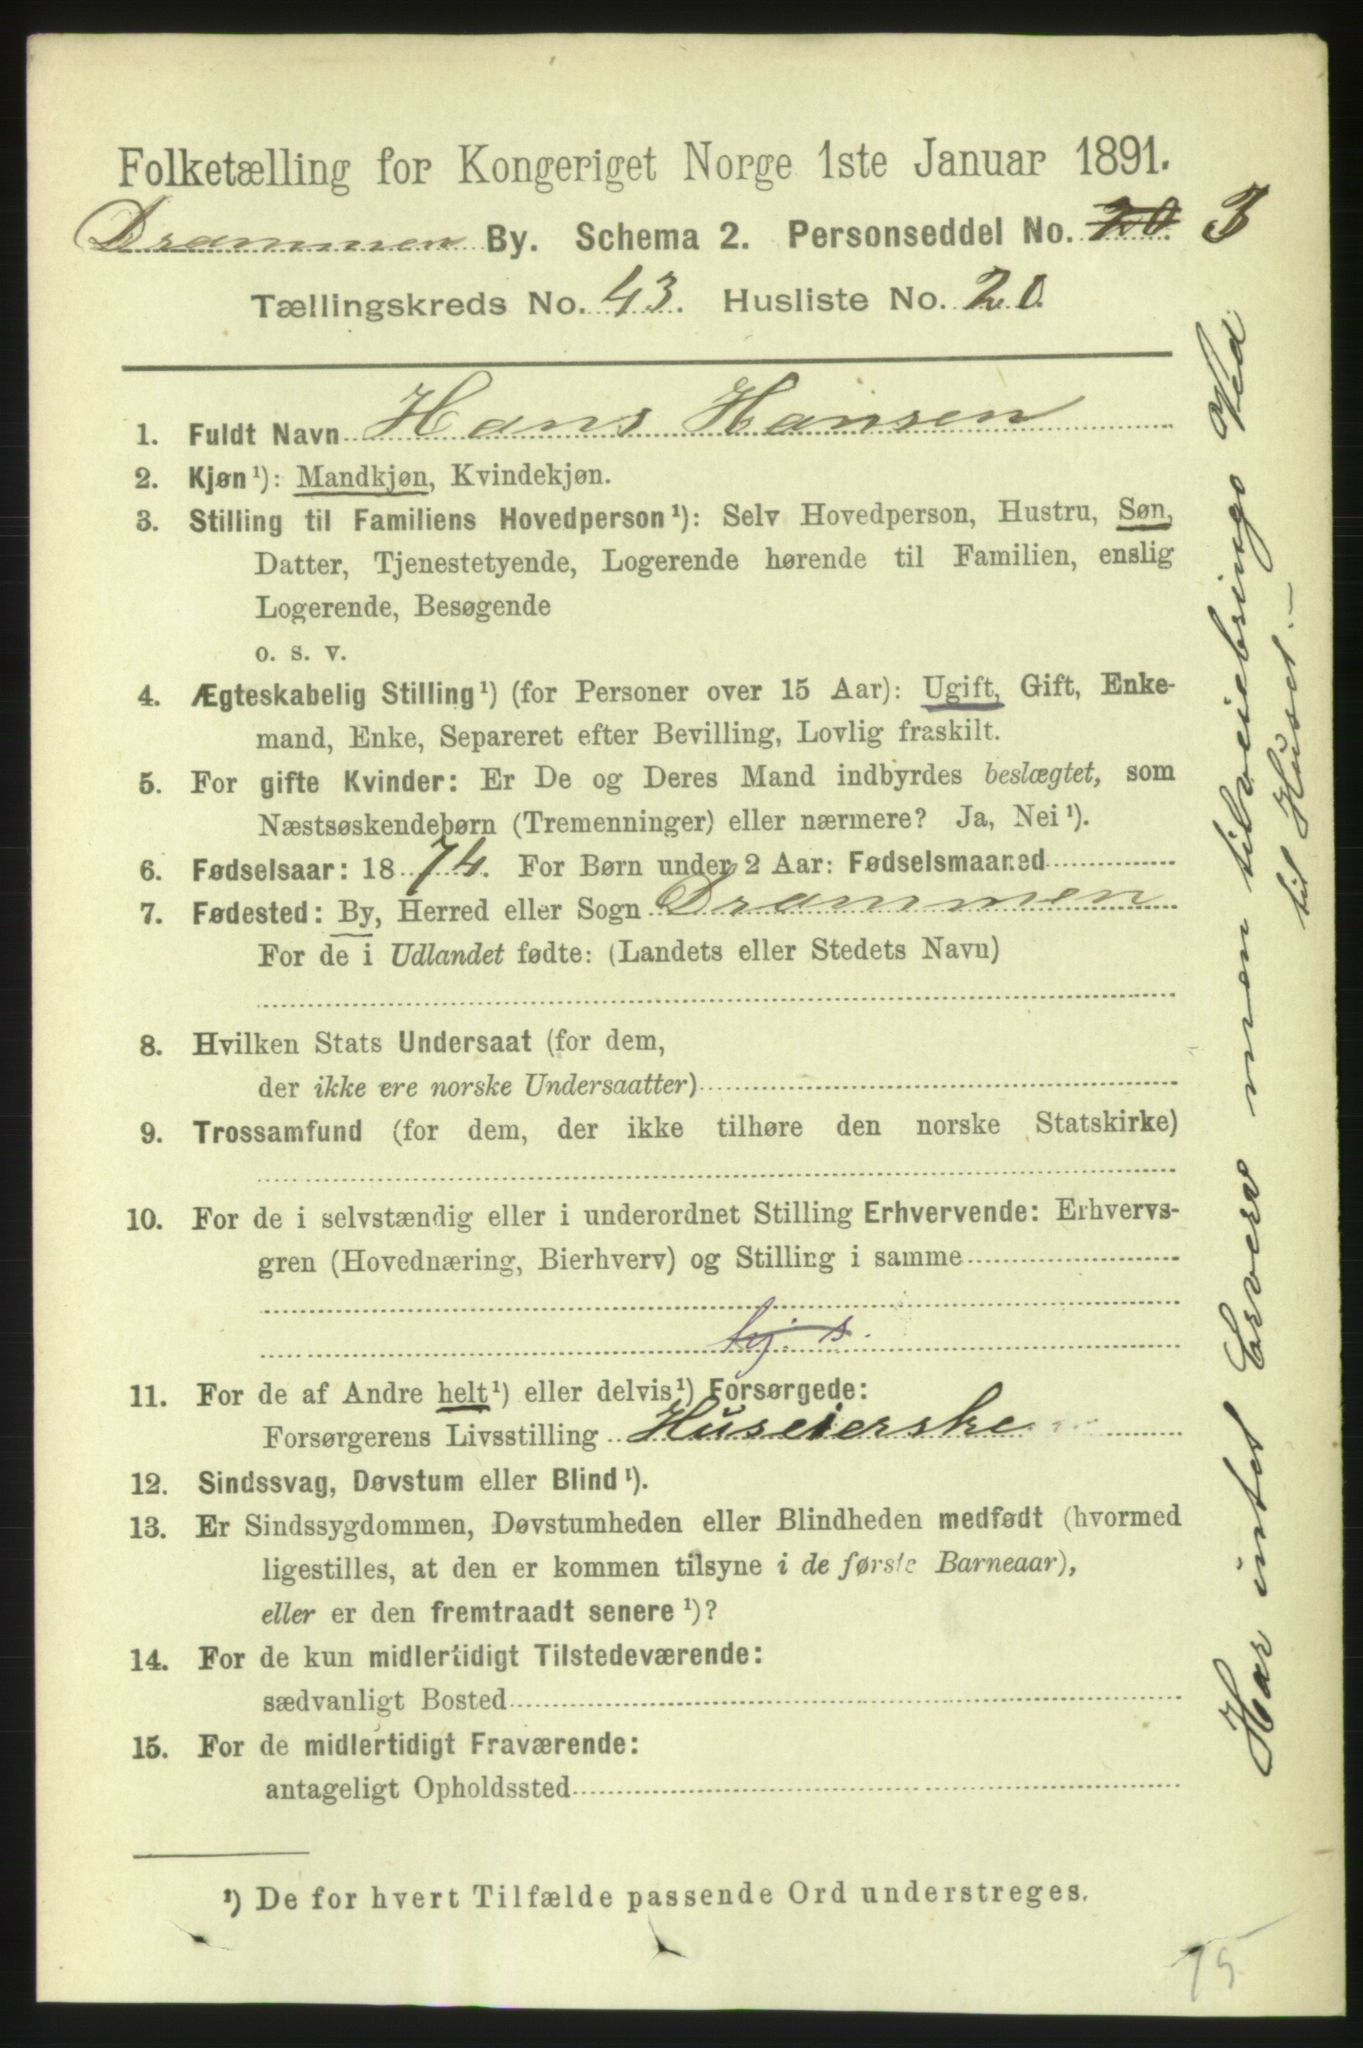 Folketælling for Kongeriget Norge 1ste Januar 1891.
Drammen By. Schema 2. Personseddel No. 20 3
Tællingskreds No. 43. Husliste No. 20.
1. Fuldt Navn Hans Hansen
2. Kjøn¹): Mandkjøn, Kvindekjøn.
3. Stilling til Familiens Hovedperson¹): Selv Hovedperson, Hustru, Søn,
Datter, Tjenestetyende, Logerende hørende til Familien, enslig
Logerende, Besøgende
o. s. v.
4. Ægteskabelig Stilling¹) (for Personer over 15 Aar): Ugift, Gift, Enke-
mand, Enke, Separeret efter Bevilling, Lovlig fraskilt.
5. For gifte Kvinder: Er De og Deres Mand indbyrdes beslægtet, som
Næstsøskendebørn (Tremenninger) eller nærmere? Ja, Nei¹).
6. Fødselsaar: 1874. For Børn under 2 Aar: Fødselsmaaned
7. Fødested: By, Herred eller Sogn Drammen
For de i Udlandet fødte: (Landets eller Stedets Navn)
8. Hvilken Stats Undersaat (for dem,
der ikke ere norske Undersaatter)
9. Trossamfund (for dem, der ikke tilhøre den norske Statskirke)
10. For de i selvstændig eller i underordnet Stilling Erhvervende: Erhvervs-
gren (Hovednæring, Bierhverv) og Stilling i samme
hj. s.
11. For de af Andre helt¹) eller delvis¹) Forsørgede:
Forsørgerens Livsstilling Huseierske
12. Sindssvag, Døvstum eller Blind¹).
13. Er Sindssygdommen, Døvstumheden eller Blindheden medfødt (hvormed
ligestilles, at den er kommen tilsyne i de første Barneaar),
eller er den fremtraadt senere¹)?
14. For de kun midlertidigt Tilstedeværende:
sædvanligt Bosted
15. For de midlertidigt Fraværende:
antageligt Opholdssted
¹) De for hvert Tilfælde passende Ord understreges.
Har intet Erverv men tilveiebringe Ved
til Huset.—
75